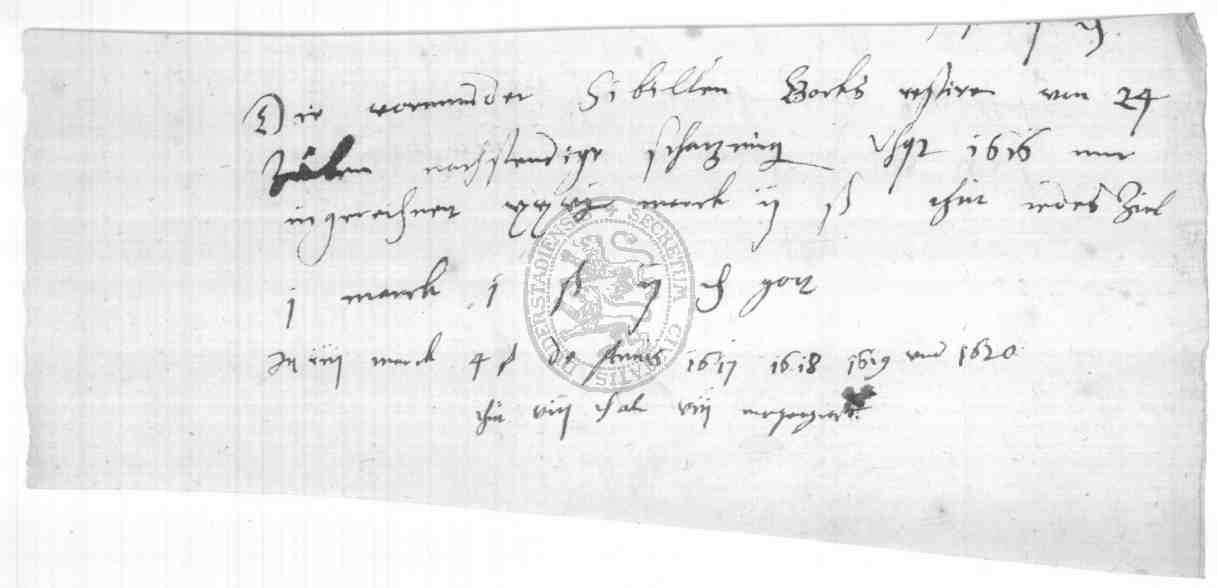 Die vormunder Sibillen Borks restiren von 24
Zilen nachstendige schatzung Usque 1616 mit
ingerechnet xxvij marck ij ß thut iedes Ziel
j marck j ß ij d gott
iiij marck 4 ß de Annis 1617 1618 1619 und 1620
thut viij thal viij
SECRETUM CIVITATIS DUDERSTADIENSIS